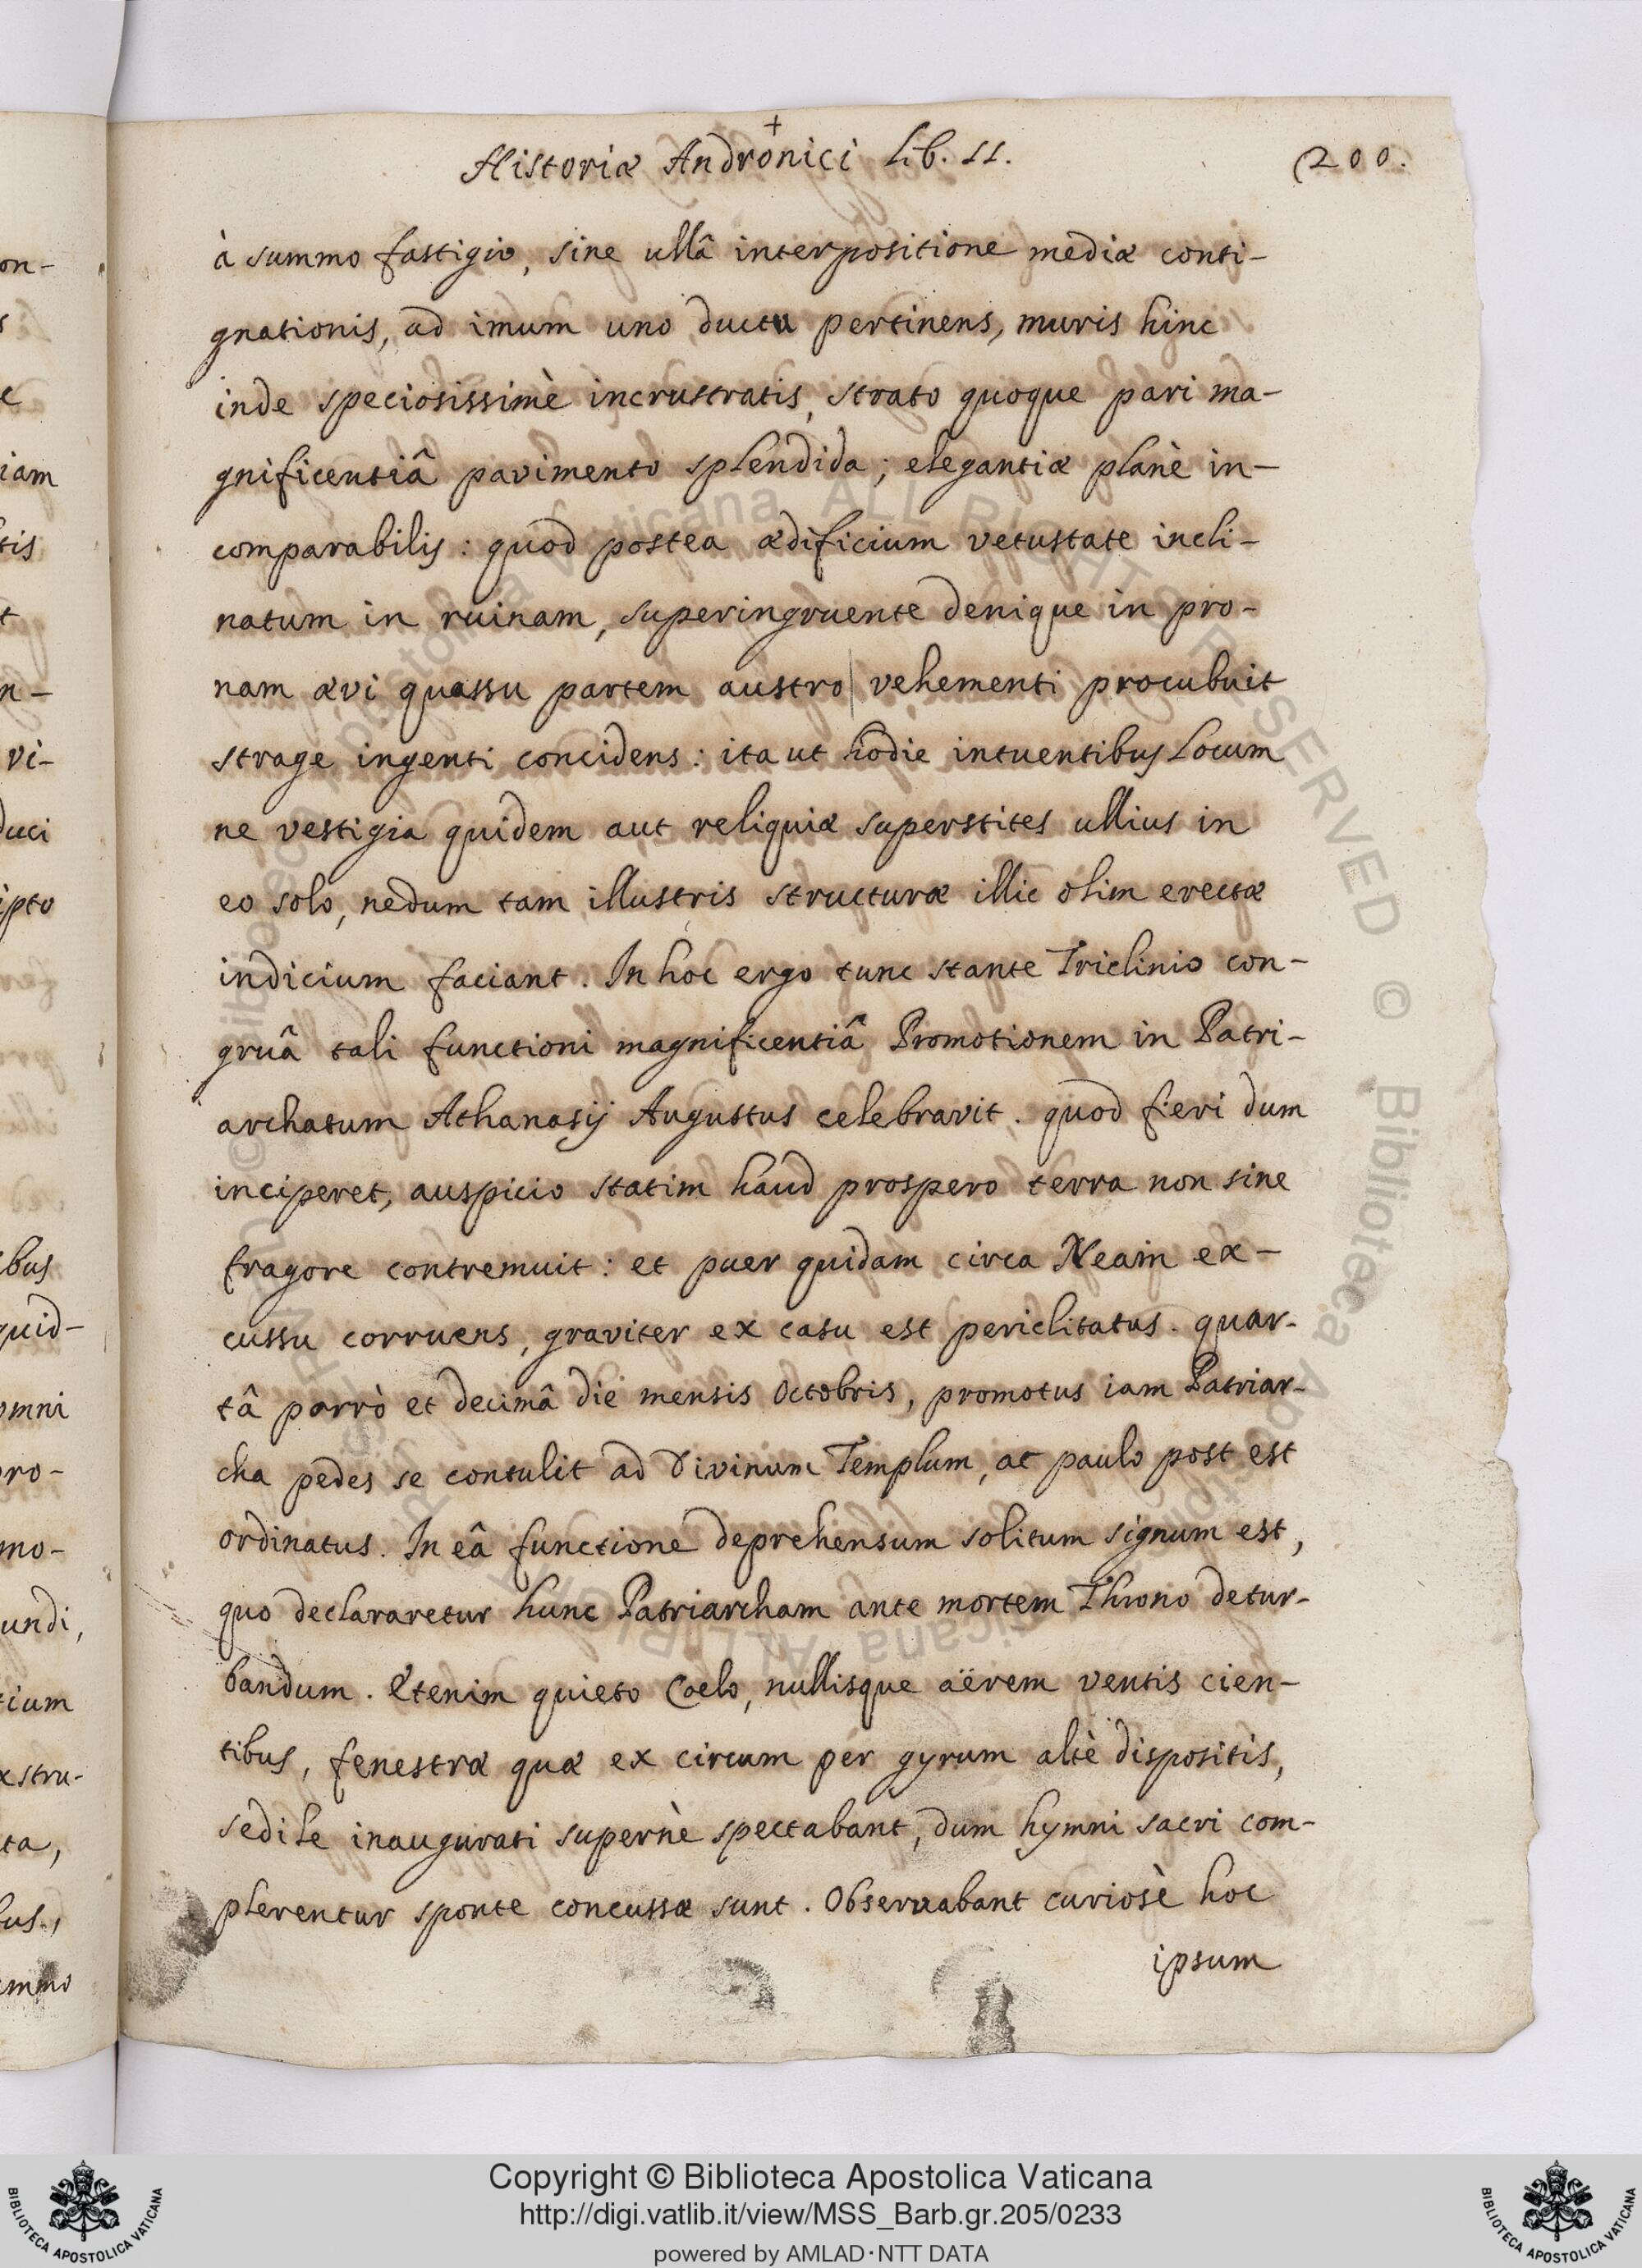 +
Historiæ Andronici Lib. II.
(200.
à summo fastigio, sine ullâ interpositione mediæ conti-
gnationis, ad imum uno ductu pertinens, muris hinc
inde speciosissimè incrustratis, strato quoque pari ma-
gnificentiâ pavimento splendida; elegantiæ planè in-
comparabilis: quod postea ædificium vetustate incli-
natum in ruinam, superingruente denique in pro-
nam ævi quassu partem austro vehementi procubuit
strage ingenti concidens: ita ut hodie intuentibus Locum
ne vestigia quidem aut reliquiæ superstites ullius in
eo solo, nedum tam illustris structuræ illic olim erectæ
indicium faciant. In hoc ergo tunc stante Triclinio con-
gruâ tali functioni magnificentiâ Promotionem in Patri-
archatum Athanasij Augustus celebravit. quod fieri dum
inciperet, auspicio statim haud prospero terra non sine
fragore contremuit: et puer quidam circa Neam ex-
cussu corruens, graviter ex casu est periclitatus. quar-
tâ porrò et decimâ die mensis Octobris, promotus iam Patriar-
cha pedes se contulit ad Divinum Templum, ac paulo post est
ordinatus. In eâ functione deprehensum solitum signum est,
quo declararetur hunc Patriarcham ante mortem Throno detur-
bandum. Etenim quieto Coelo, nullisque aërem ventis cien-
tibus, fenestræ quæ ex circum per gyrum altè dispositis,
sedile inaugurati supernè spectabant, dum hymni sacri com-
plerentur sponte concussæ sunt. Observabant curiosè hoc
ipsum
on-
iam
tis
t
n-
vi-
duci
ipto
bus
quid-
omni
pro-
mo-
undi,
tium
xstru-
ta,
bus,
ummo
© Biblioteca Apostolica Vaticana ALL RIGHTS RESERVED
Copyright © Biblioteca Apostolica Vaticana
http://digi.vatlib.it/view/MSS_Barb.gr.205/0233
powered by AMLAD·NTT DATA
BIBLIOTECA APOSTOLICA VATICANA
BIBLIOTECA APOSTOLICA VATICANA